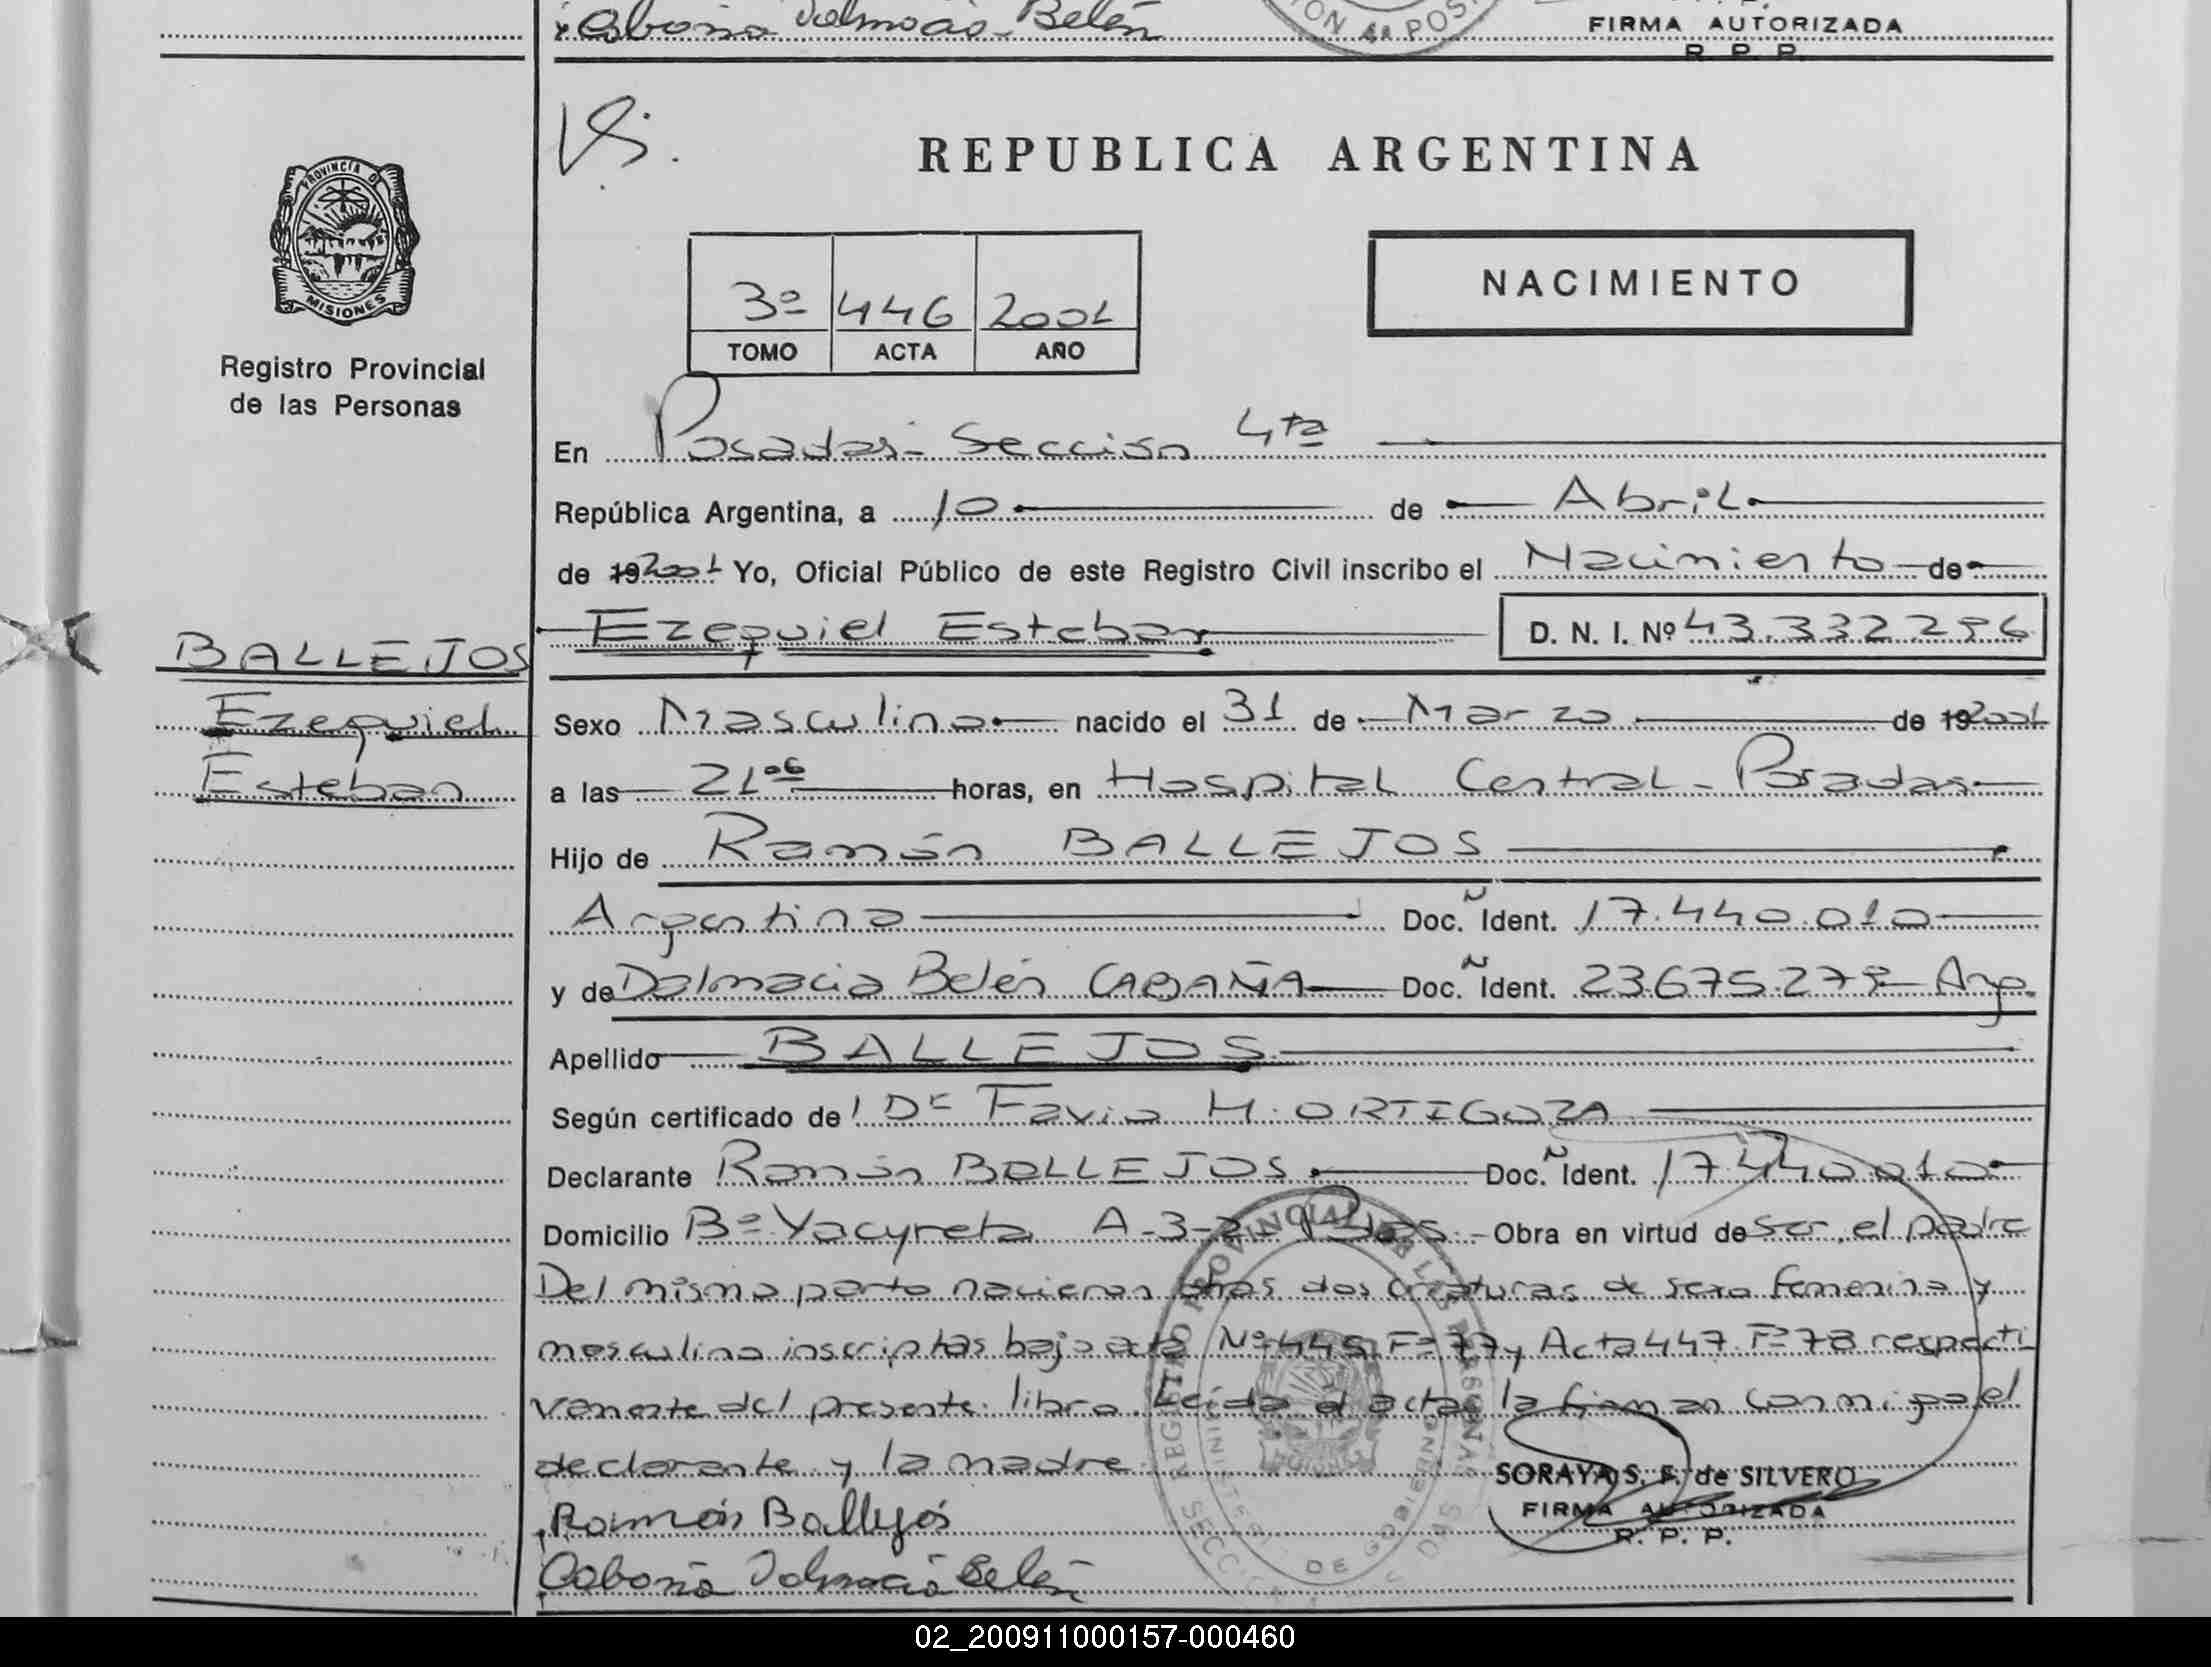 Cabaña Dalmacia Belén
CION 4a POS
FIRMA AUTORIZADA
R. P. P.
PROVINCIA D
MISIONES
Registro Provincial
de las Personas
REPUBLICA ARGENTINA
NACIMIENTO
3º 446 2001
TOMO ACTA AÑO
En Posadas- Sección 4ta
República Argentina, a 10 de Abril
de 192001 Yo, Oficial Público de este Registro Civil inscribo el Nacimiento de
Ezequiel Esteban D. N. I. Nº 43.332.296
BALLEJOS
Ezequiel
Esteban
Sexo Masculino nacido el 31 de Marzo de 192001
a las 21 06 horas, en Hospital Central - Posadas
Hijo de Ramón BALLEJOS
Argentina Doc. Ñ Ident. 17.440.010
y de Dalmacia Belén CABAÑA Doc. Ñ Ident. 23.675.278- Arg.
Apellido BALLEJOS
Según certificado de Dr Favio H. ORTIGOZA
Declarante Ramón BALLEJOS Doc. Ñ Ident. 17.440.010
Domicilio Bº Yacyreta A-3-2 Pdas. Obra en virtud de ser el padre
Del mismo parto nacieron otras dos criaturas de sexo femenino y
masculino inscriptas bajo acta Nº 445 Fº 77 y Acta 447 Fº 78 respecti
vamente del presente libro. Leída el acta la firman conmigo el
declarante y la madre
SORAYA S. F. de SILVERO
FIRMA AUTORIZADA
R. P. P.
Ramón Ballejos
Cabaña Dalmacia Belén
REGISTRO PROVINCIAL DE LAS PERSONAS
DE GOBIERNO
02_200911000157-000460